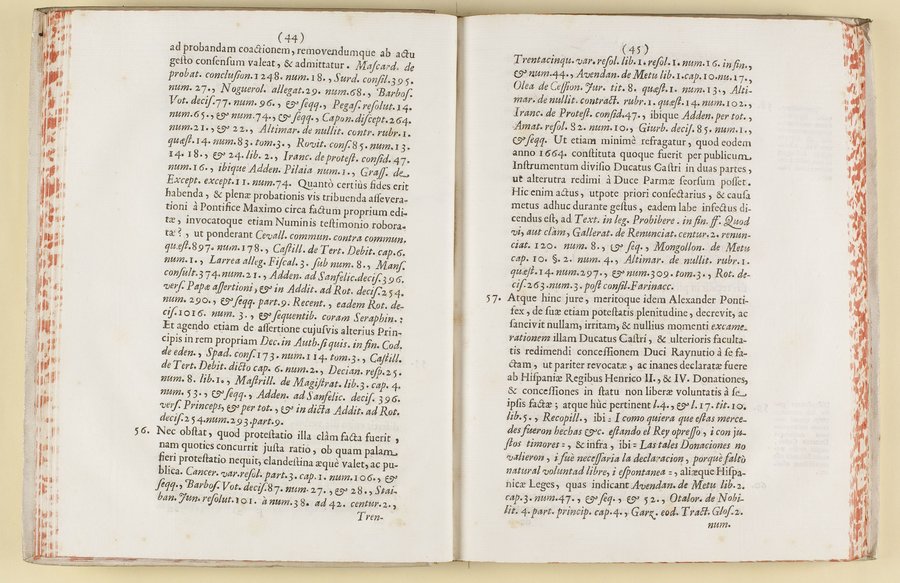 (44)
ad probandam coactionem, removendumque ab actu
gesto consensum valeat, & admittatur. Mascard. de
probat. conclusion.1248. num.18., Surd. consil.395.
num.27., Noguerol. allegat.29. num.68., Barbos.
Vot. decis.77. num.96., & seqq., Pegas. resolut.14.
num.65., & num.74., & seqq., Capon. discept.264.
num.21., & 22., Altimar. de nullit. contr. rubr.1.
quæst.14. num.83. tom.3., Rovit. cons.85. num.13.
14. 18., & 24. lib.2., Iranc. de protest. consid. 47.
num.16., ibique Adden. Pilaia num.1., Grass. de
Except. except.11. num.74. Quantò certiùs fides erit
habenda, & plenæ probationis vis tribuenda assevera-
tioni à Pontifice Maximo circa factum proprium edi-
tæ, invocatoque etiam Numinis testimonio robora-
tæ?, ut ponderant Cevall. commun. contra commun.
quæst.897. num.178., Castill. de Tert. Debit. cap.6.
num.1., Larrea alleg. Fiscal. 3. sub num. 8., Mans.
consult.374.num.21., Adden. ad Sanfelic.decis.396.
vers. Papæ assertioni, & in Addit. ad Rot. decis.254.
num. 290., & seqq. part.9. Recent., eadem Rot. de-
cis.1016. num. 3., & sequentib. coram Seraphin.:
Et agendo etiam de assertione cujusvis alterius Prin-
cipis in rem propriam Dec. in Auth. si quis. in fin. Cod.
de eden., Spad. cons.173. num.114. tom.3., Castill.
de Tert. Debit. dicto cap. 6. num.2., Decian. resp.25.
num. 8. lib.1., Mastrill. de Magistrat. lib.3. cap. 4.
num. 53., & seqq., Adden. ad Sanfelic. decis. 396.
vers. Princeps, & per tot., & in dicta Addit. ad Rot.
decis.254.num.293.part.9.
56. Nec obstat, quod protestatio illa clàm facta fuerit,
nam quoties concurrit justa ratio, ob quam palam
fieri protestatio nequit, clandestina æquè valet, ac pu-
blica. Cancer. var.resol. part.3. cap.1. num.106., &
seqq., Barbos. Vot. decis.87. num.27., & 28., Stai-
ban. Jun. resolut.101. à num.38. ad 42. centur.2.,
Tren-
(45)
Trentacinqu. var. resol. lib.1. resol.1. num.16. in fin.,
& num.44., Avendan. de Metu lib.1.cap.10.nu.17.,
Olea de Cession. Jur. tit.8. quæst.1. num.13., Alti-
mar. de nullit. contract. rubr.1. quæst.14. num.102.,
Iranc. de Protest. consid.47., ibique Adden. per tot.,
Amat. resol. 82. num.10., Giurb. decis. 85. num.1.,
& seqq. Ut etiam minimè refragatur, quod eodem
anno 1664. constituta quoque fuerit per publicum
Instrumentum divisio Ducatus Castri in duas partes,
ut alterutra redimi à Duce Parmæ seorsum posset.
Hic enim actus, utpote priori consectarius, & causa
metus adhuc durante gestus, eadem labe infectus di-
cendus est, ad Text. in leg. Prohibere. in fin. ff. Quod
vi, aut clàm, Gallerat. de Renunciat. centur.2. renun-
ciat. 120. num. 8., & seq., Mongollon. de Metu
cap. 10. §. 2. num. 4., Altimar. de nullit. rubr.1.
quæst.14. num.297., & num.309. tom.3., Rot. de-
cis.263.num.3. post consil.Farinacc.
57. Atque hinc jure, meritoque idem Alexander Ponti-
fex, de suæ etiam potestatis plenitudine, decrevit, ac
sancivit nullam, irritam, & nullius momenti excame-
rationem illam Ducatus Castri, & ulterioris faculta-
tis redimendi concessionem Duci Raynutio à se fa-
ctam, ut pariter revocatæ, ac inanes declaratæ fuere
ab Hispaniæ Regibus Henrico II., & IV. Donationes,
& concessiones in statu non liberæ voluntatis à se
ipsis factæ; atque hùc pertinent l.4., & l.17. tit.10.
lib.5., Recopill., ibi = I como quiera que estas merce-
des fueron hechas &c. estando el Rey opresso, i con ju-
stos timores =, & infra, ibi = Las tales Donaciones no
valieron, i fuè necessaria la declaracion, porquè faltò
natural voluntad libre, i espontanea =, aliæque Hispa-
nicæ Leges, quas indicant Avendan. de Metu lib.2.
cap.3. num.47., & seq., & 52., Otalor. de Nobi-
lit. 4. part. princip. cap.4., Garz. eod. Tract. Glos.2.
num.